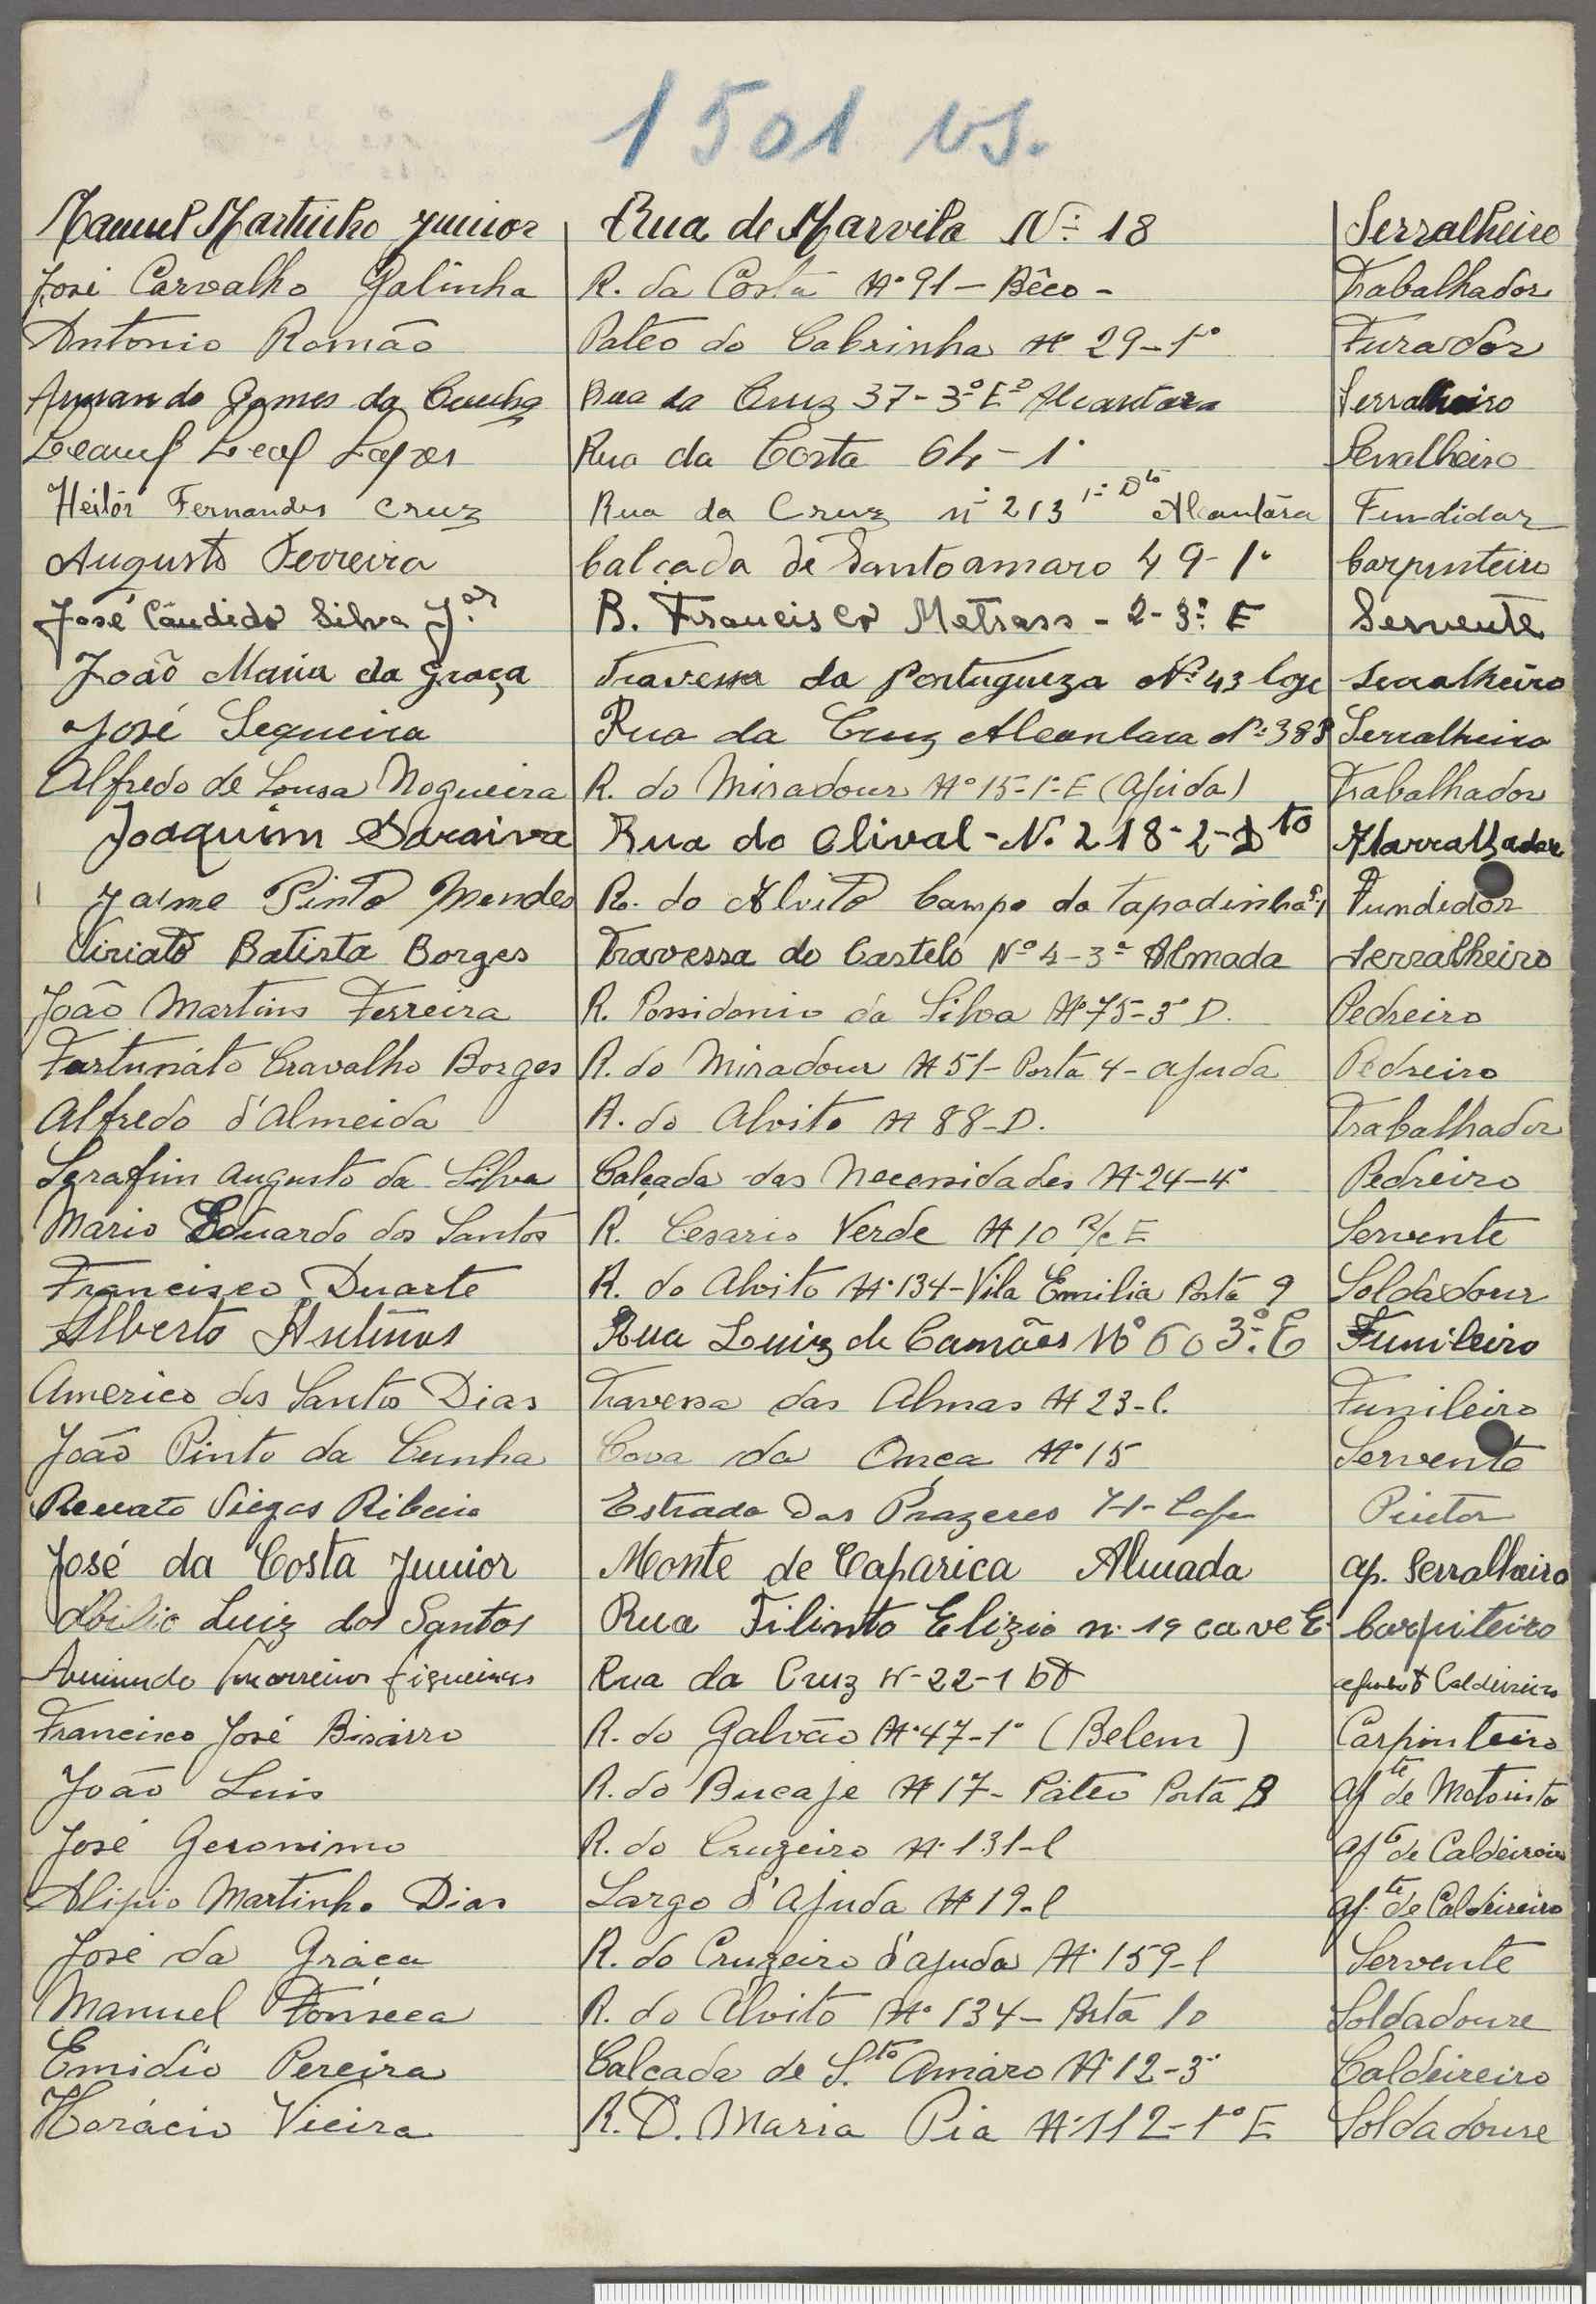 1501 vs.
Manuel Martinho Junior Rua de Marvila Nº 18 Serralheiro
José Carvalho Galinha R. da Costa Nº 91 - Bêco - Trabalhador
Antonio Romão Pateo do Cabrinha Nº 29-1º Furador
Armando Gomes da Cunha Rua da Cruz 37-3º Eº Alcantara Serralheiro
Leal Lopes Rua da Costa 64-1º Serralheiro
Heitôr Fernandes Cruz Rua da Cruz nº 213 1º Dto Alcantâra Fundidor
Augusto Ferreira Calçada de Santoamaro 49-1º Carpinteiro
José Cândido Silva Jor R. Francisco Metrass - 2-3º E Servente
João Maria da Graça Travessa da Portugueza Nº 43 loge Serralheiro
José Sequeira Rua da Cruz Alcantara Nº 383 Serralheiro
Alfredo de Sousa Nogueira R. do Miradour Nº 15-1º-E (Ajuda) Trabalhador
Joaquim Saraiva Rua do Olival - N. 218-2-Dto Marralhador
Jaime Pinto Mendes R. do Alvito Campo da Tapadinha Fundidor
Viriato Batista Borges Travessa do Castelo Nº 4-3º Almada Serralheiro
João Martins Ferreira R. Possidonio da Silva Nº 75-3º D. Pedreiro
Fortunáto Cravalho Borges R. do Miradour Nº 51- Porta 4- Ajuda Pedreiro
Alfredo d'Almeida R. do Alvito Nº 88-D. Trabalhador
Serafim Augusto da Silva Calçada das Necessidades Nº 24-4º Pedreiro
Mario Eduardo dos Santos R. Cesario Verde Nº 10 R/c E Servente
Francisco Duarte R. do Alvito Nº 134-Vila Emilia Porta 9 Soldadour
Alberto Antunes Rua Luiz de Camões Nº 60 3º. E Funileiro
Americo dos Santos Dias Travessa das Almas Nº 23-l. Funileiro
João Pinto da Cunha Cova da Onça Nº 15 Servente
Renato Viegas Ribeiro Estrada Dos Prazeres Pintor
José da Costa Junior Monte de Caparica Almada Ap. Serralheiro
Abilio Luiz dos Santos Rua Filinto Elizio n. 19 cave E Carpiteiro
Figueiras Rua da Cruz Nº 22-1 Caldeireiro
Francisco José Bisarro R. do Galvão Nº 47-1º (Belem) Carpinteiro
João Luis R. do Bucaje Nº 17- Páteo Porta B Ajte de Motorista
José Geronimo R. do Cruzeiro Nº 131-l Ajte de Caldeireiro
Alipio Martinho Dias Largo d'Ajuda Nº 19-l Ajte de Caldeireiro
José da Graça R. do Cruzeiro d'Ajuda Nº 159-l Servente
Manuel Fonseca R. do Alvito Nº 134- Porta 10 Soldadoure
Emidio Pereira Calçada de Sto Amáro Nº 12-3º Caldeireiro
Horácio Vieira R. D. Maria Pia Nº 112-1º E Soldadoure